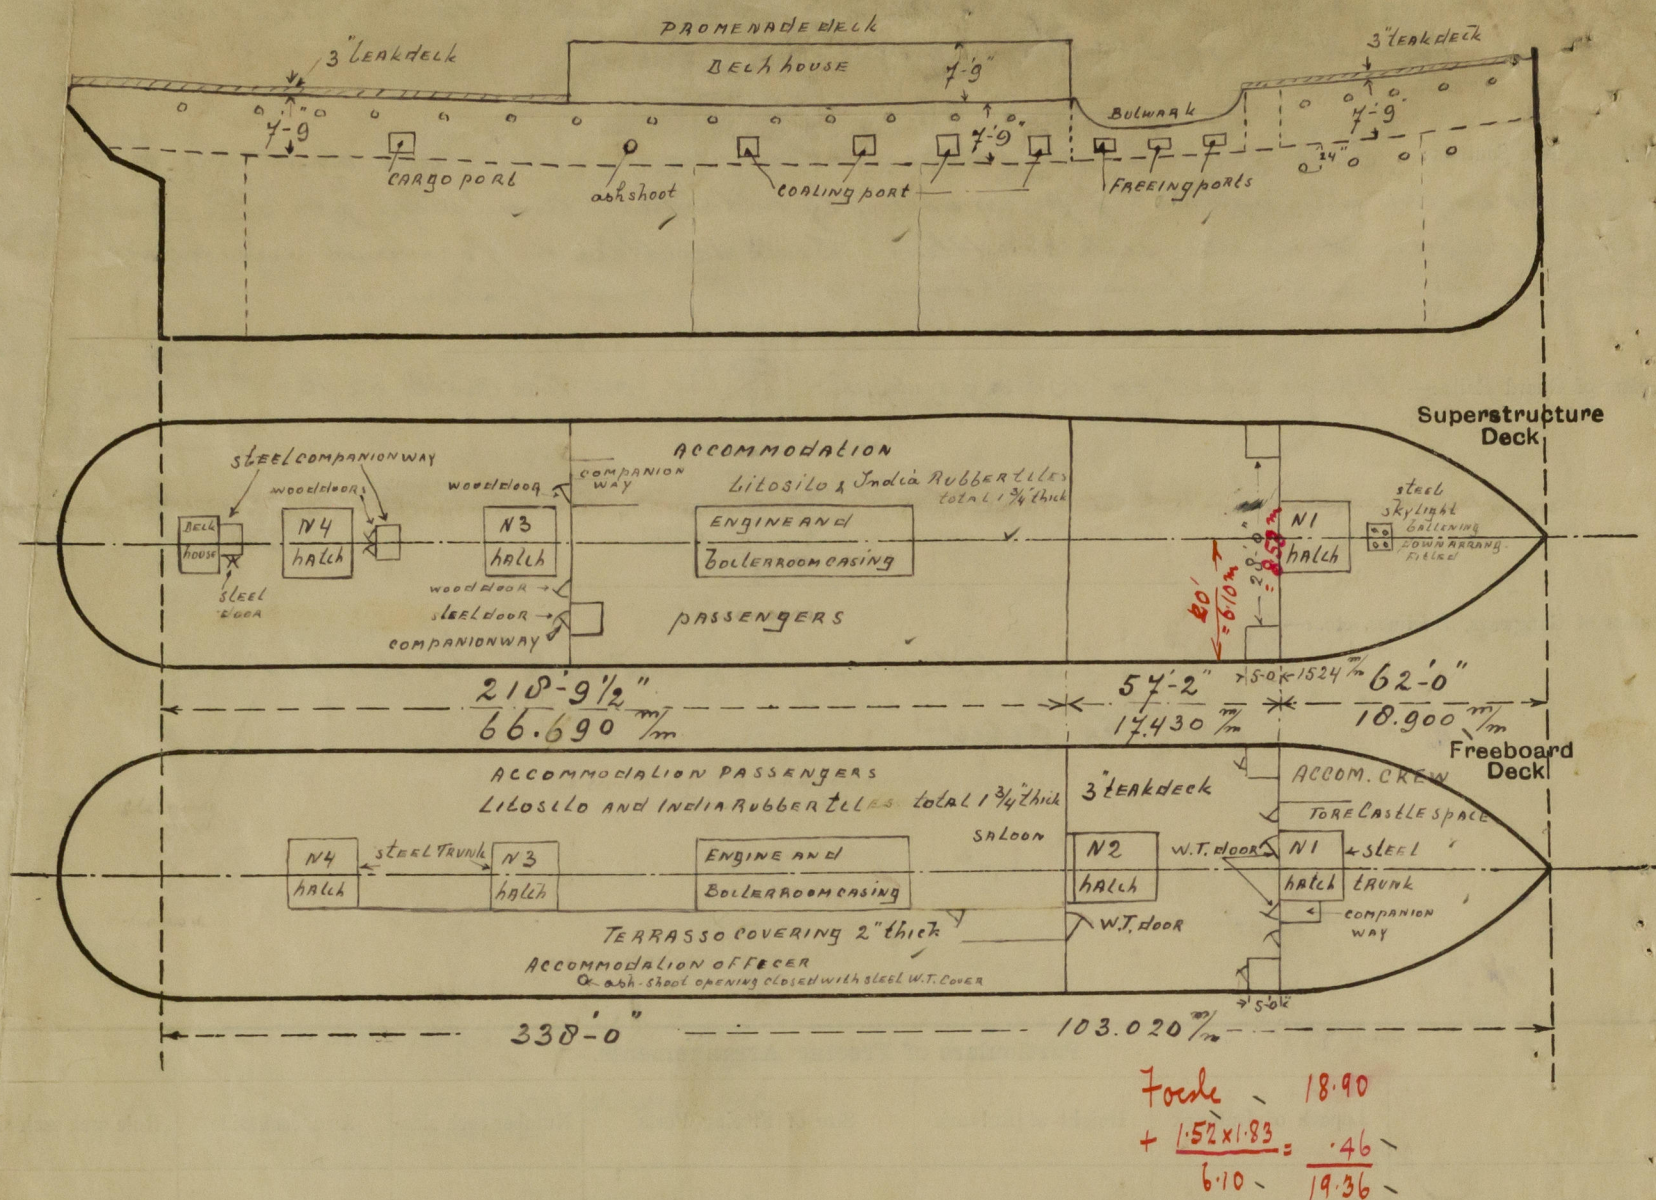 PROMENADE deck
3" tEAK dECK
3" tEAK dECK
dECK hOUSE
7'-9"
7-9"
7'-9"
7-9"
BULWARK
CARGO PORt
ash shoot
COALING port
FREEING ports
24"
Superstructure
Deck
STEEL COMPANION WAY
wood doors
wood door
COMPANION
WAY
ACCOMMODATION
Litosilo & India RUBBER tiles
total 1 3/4" thick
dECK
house
N4
hatch
N3
hatch
ENGINE AND
boilerroom casing
28'-0"
= 8.53 m
20'
= 6.10 m
N1
hatch
steel
skylight
STEEL
door
wood door
steel door
COMPANION WAY
PASSENGERS
5-0"
1524 m/m
218'-9 1/2"
66.690 m/m
57'-2"
17.430 m/m
62'-0"
18.900 m/m
Freeboard
Deck
ACCOMMODATION PASSENGERS
LITOSILO AND INDIA RUBBER TILES total 1 3/4" thick
3" tEAK deck
ACCOM. CREW
FORE CASTLE SPACE
SALOON
N4
hatch
steel TRUNK
N3
hatch
ENGINE AND
BOILERROOM CASING
N2
hatch
W.T. door
N1
hatch
STEEL
TRUNK
COMPANION
WAY
W.T. door
TERRASSO COVERING 2" thick
ACCOMMODATION OFFICER
ash-shoot opening closed with steel W.T. Cover
5'-0"
338'-0"
103.020 m/m
Focsle 18.90
+ 1.52 x 1.83 = .46
6.10 19.36